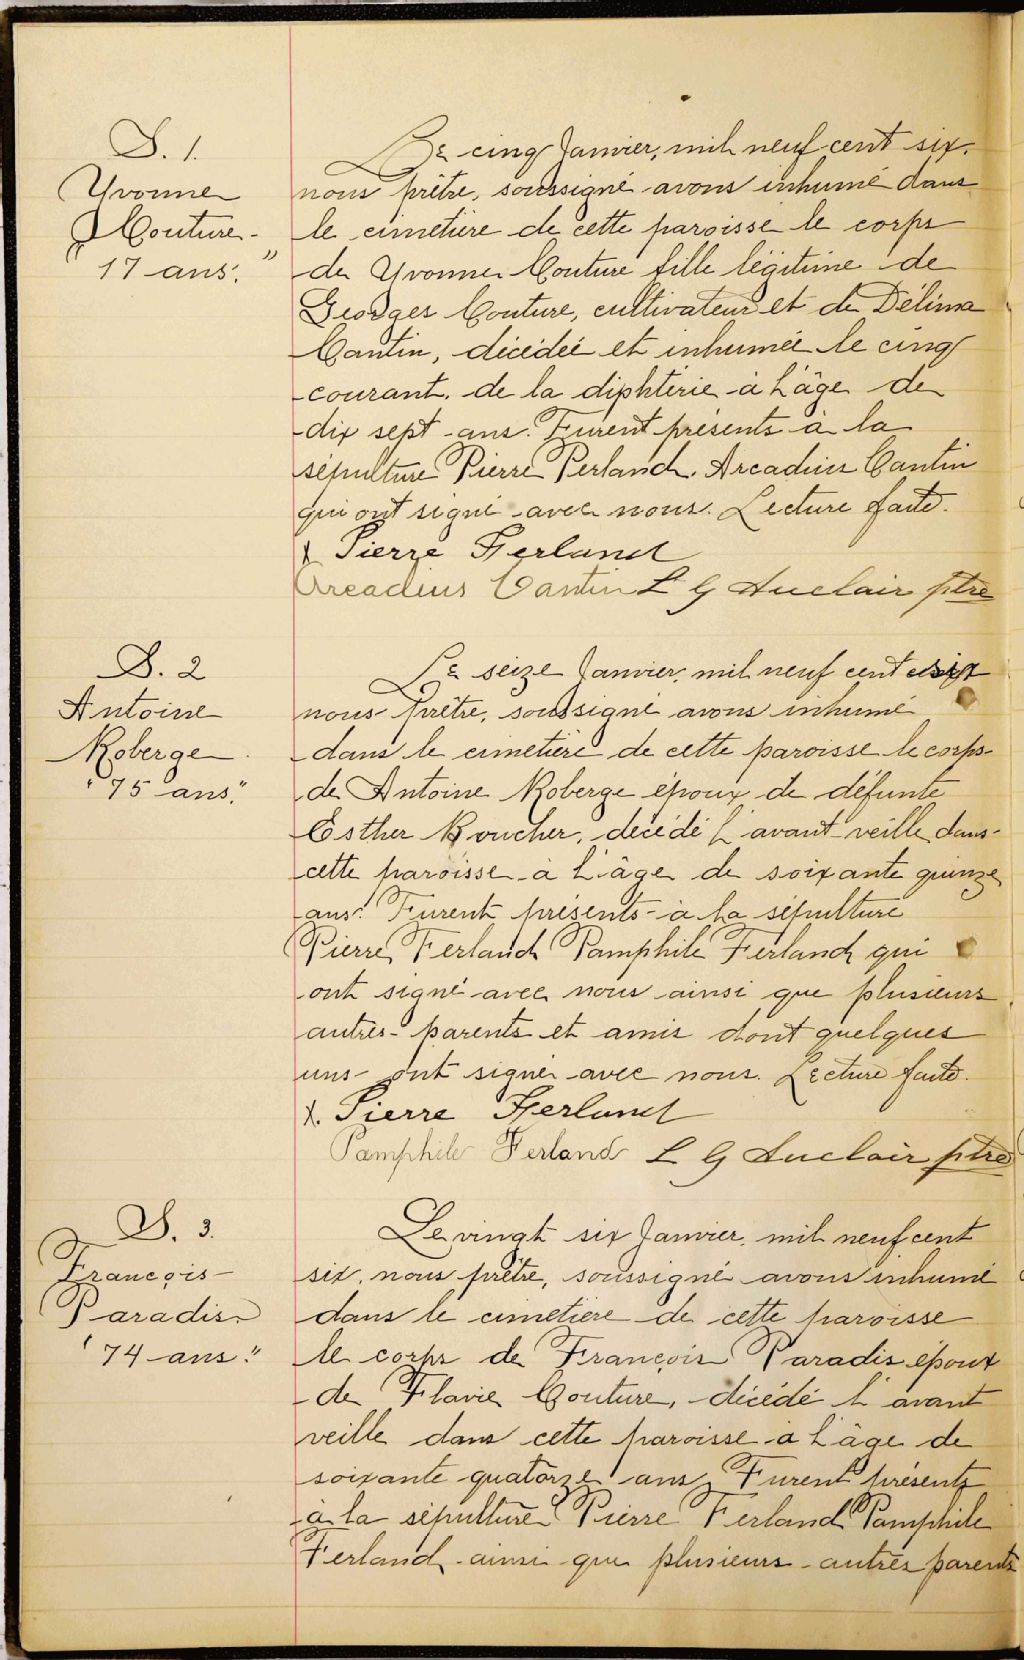 S. 1.
Yvonne
Couture
"17 ans."
Le cinq Janvier, mil neuf cent six.
nous prêtre, soussigné avons inhumé dans
le cimetière de cette paroisse le corps
de Yvonne Couture fille légitime de
Georges Couture, cultivateur et de Délima
Cantin, décédée et inhumée le cinq
courant. de la diphtérie à l'âge de
dix sept ans. Furent présents à la
sépulture Pierre Ferland. Arcadius Cantin
qui ont signé avec nous. Lecture faite.
x Pierre Ferland
Arcadius Cantin L G Auclair ptre
S. 2
Antoine
Roberge
"75 ans."
Le seize Janvier, mil neuf cent six
nous prêtre, soussigné avons inhumé
dans le cimetière de cette paroisse le corps
de Antoine Roberge époux de défunte
Esther Boucher, décédé l'avant veille dans
cette paroisse à l'âge de soixante quinze
ans. Furent présents à la sépulture
Pierre Ferland Pamphile Ferland qui
ont signé avec nous ainsi que plusieurs
autres parents et amis dont quelques
uns ont signé avec nous. Lecture faite.
x. Pierre Ferland
Pamphile Ferland L G Auclair ptre
S. 3.
François
Paradis
"74 ans."
Le vingt six Janvier, mil neuf cent
six, nous prêtre, soussigné avons inhumé
dans le cimetière de cette paroisse
le corps de François Paradis époux
de Flavie Couture, décédé l'avant
veille dans cette paroisse à l'âge de
soixante quatorze ans, Furent présents
à la sépulture Pierre Ferland Pamphile
Ferland ainsi que plusieurs autres parents